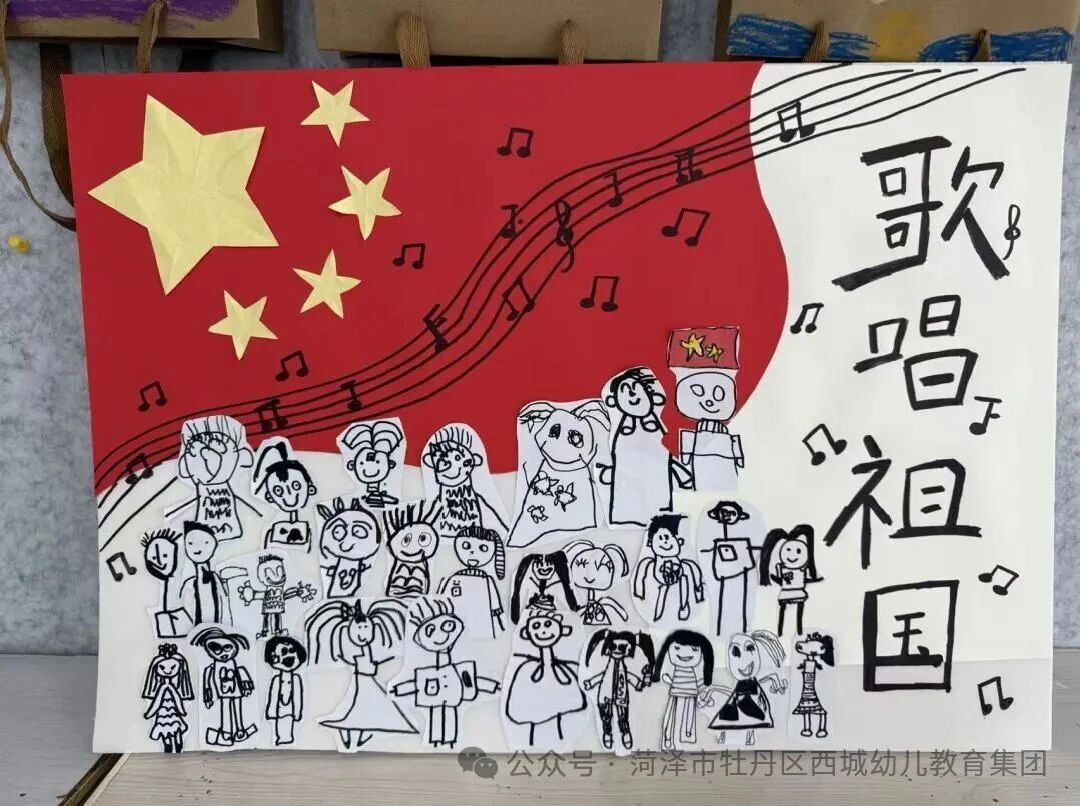 歌唱祖国
公众号·菏泽市牡丹区西城幼儿教育集团